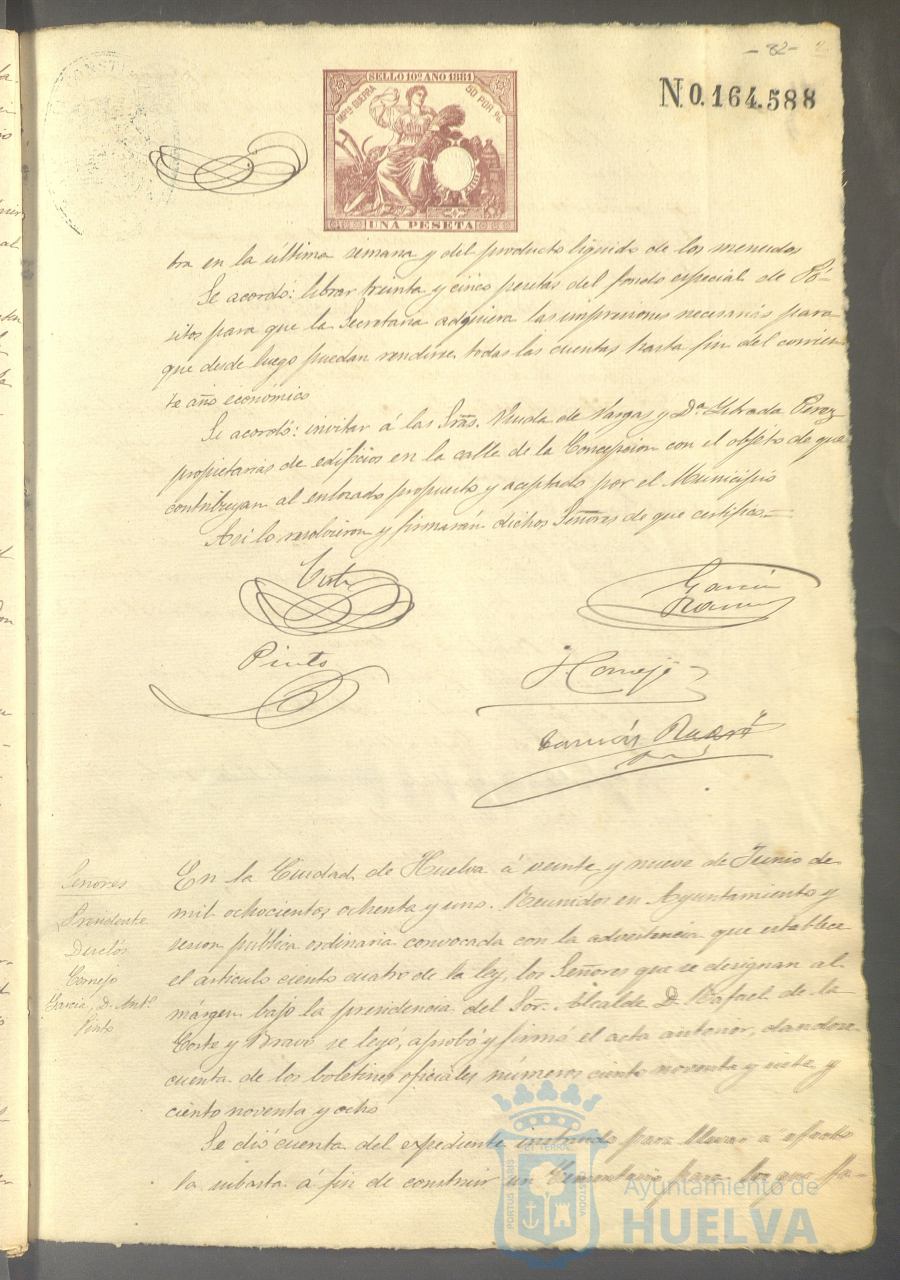 - 82 -
SELLO 10º AÑO 1881
IMPTO GUERRA
50 POR %
UNA PESETA
N.0.164.588
tra en la última semana y del producto liquido de los menudos
Se acordó: librar treinta y cinco pesetas del fondo especial de Pó-
sitos para que la Secretaria adquiera las impresiones necesarias para
que desde luego puedan rendirse todas las cuentas hasta fin del corrien-
te año económico
Se acordó: invitar á las Sras. Viuda de Vargas y Da. Librada Perez
propietarias de edificios en la calle de la Concepcion con el objeto de que
contribuyan al enlosado propuesto y aceptado por el Municipio
Asi lo resolvieron y firmarán dichos Señores de que certifico.=
Corte
Garcia
Ramos
Pinto
Cornejo
Señores
Presidente
Cornejo
Garcia, D. Antº
Pinto
En la Ciudad de Huelva á veinte y nueve de Junio de
mil ochocientos ochenta y uno. Reunidos en Ayuntamiento y
sesion pública ordinaria convocada con la advertencia que establece
el artículo ciento cuatro de la ley, los Señores que se designan al
márgen bajo la presidencia del Sor. Alcalde D. Rafael de la
Corte y Bravo se leyó, aprobó y firmó el acta anterior, dandose
cuenta de los boletines oficiales números ciento noventa y siete y
ciento noventa y ocho
Se dió cuenta del expediente instruido para llevar á efecto
la subasta á fin de construir un Cementerio para los que fa-
PORTUS MARIS
ET TERRAE
CUSTODIA
Ayuntamiento de
HUELVA